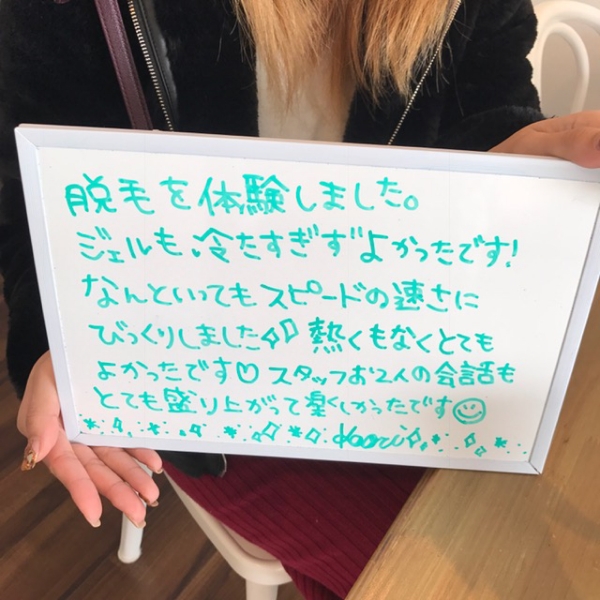 脱毛を体験しました。
ジェルも冷たすぎずよかったです!
なんといってもスピードの速さに
びっくりしました 熱くもなくとても
よかったです♡ スタッフお2人の会話も
とても盛り上がって楽しかったです☺